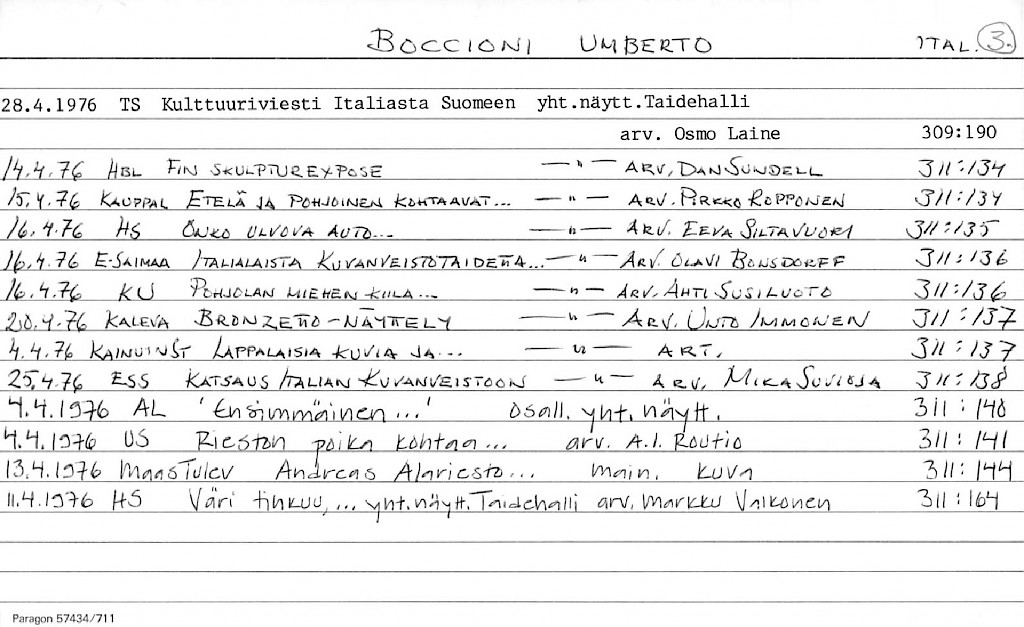 BOCCIONI UMBERTO ITAL. 3.
28.4.1976 TS Kulttuuriviesti Italiasta Suomeen yht.näytt.Taidehalli
arv. Osmo Laine 309:190
14.4.76 HBL FIN SKULPTUREXPOSE — " — ARV. DAN SUNDELL 311:134
15.4.76 KAUPPAL ETELÄ JA POHJOINEN KOHTAAVAT... — " — ARV. PIRKKO ROPPONEN 311:134
16.4.76 HS ONKO ULVOVA AUTO... — " — ARV. EEVA SILTAVUORI 311:135
16.4.76 E-SAIMAA ITALIALAISTA KUVANVEISTOTAIDETTA... — " — ARV. OLAVI BONSDORFF 311:136
16.4.76 KU POHJOLAN MIEHEN KIILA... — " — ARV. AHTI SUSILUOTO 311:136
20.4.76 KALEVA BRONZETTO-NÄYTTELY — " — ARV. UNTO IMMONEN 311:137
4.4.76 KAINUUNST LAPPALAISIA KUVIA JA... — " — ART. 311:137
25.4.76 ESS KATSAUS ITALIAN KUVANVEISTOON — " — ARV. MIKA SUVIOJA 311:138
4.4.1976 AL 'Ensimmäinen...' osall. yht. näytt. 311:140
4.4.1976 US Rieston poika kohtaa... arv. A.I. Routio 311:141
13.4.1976 MaasTulev Andreas Alariesto... main. kuva 311:144
11.4.1976 HS Väri tihkuu,... yht.näytt. Taidehalli arv. Markku Valkonen 311:164
Paragon 57434/711